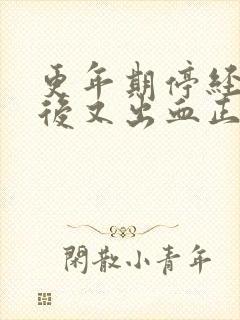 更年期停経
後又出血正
閑散小青年